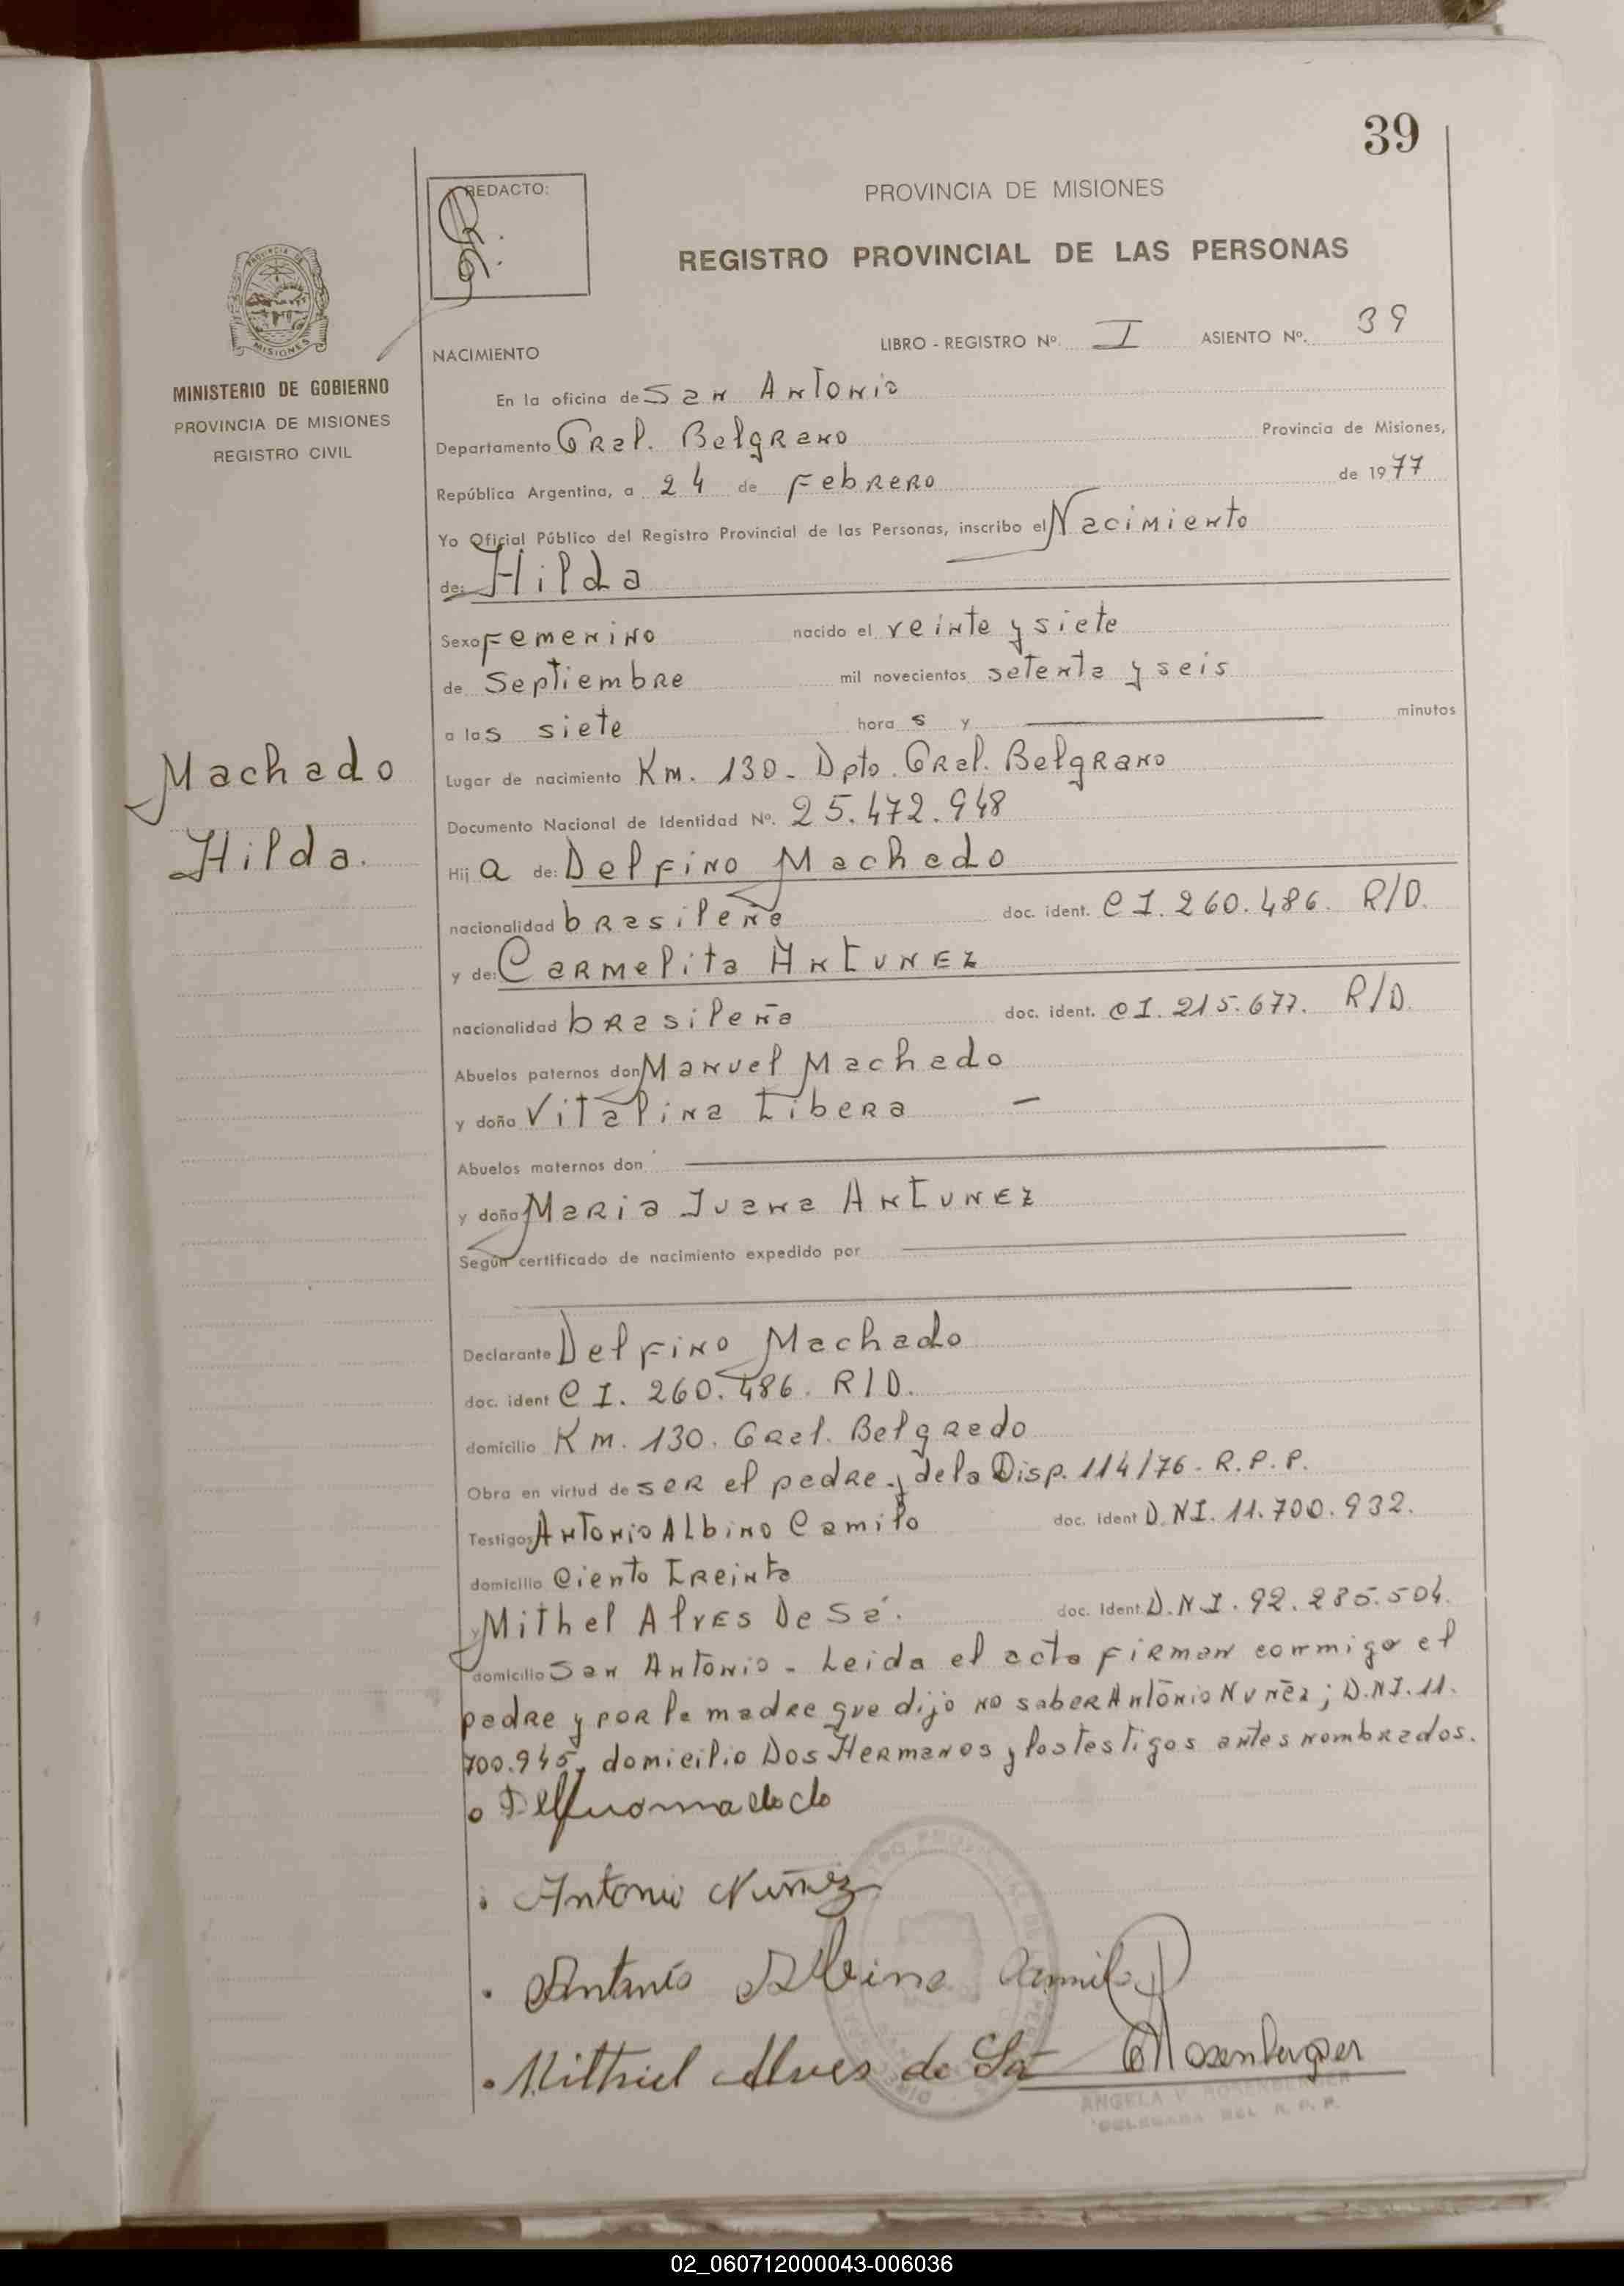 39
REDACTO:
PROVINCIA DE MISIONES
REGISTRO PROVINCIAL DE LAS PERSONAS
PROVINCIA DE
MISIONES
MINISTERIO DE GOBIERNO
PROVINCIA DE MISIONES
REGISTRO CIVIL
NACIMIENTO LIBRO - REGISTRO Nº. I ASIENTO Nº. 39
En la oficina de San Antonio
Departamento Gral. Belgrano Provincia de Misiones,
República Argentina, a 24 de Febrero de 1977
Yo Oficial Público del Registro Provincial de las Personas, inscribo el Nacimiento
de: Hilda
Sexo Femenino nacido el veinte y siete
de Septiembre mil novecientos setenta y seis
a las siete hora s y minutos
Machado
Hilda.
Lugar de nacimiento Km. 130 - Dpto. Gral. Belgrano
Documento Nacional de Identidad Nº. 25.472.948
Hij a de: Delfino Machado
nacionalidad brasileña doc. ident. C I. 260.486. R/D.
y de: Carmelita Antunez
nacionalidad brasileña doc. ident. C I. 215.677. R/D.
Abuelos paternos don Manuel Machado
y doña Vitalina Libera —
Abuelos maternos don
y doña Maria Juana Antunez
Según certificado de nacimiento expedido por
Declarante Delfino Machado
doc. ident C I. 260.486. R/D.
domicilio Km. 130. Gral. Belgrado
Obra en virtud de ser el padre y de la Disp. 114/76 - R.P.P.
Testigos Antonio Albino Camilo doc. ident D.NI. 11.700.932.
domicilio Ciento Treinta
y Mithel Alves De Sá. doc. Ident. D.N I. 92.285.504.
domicilio San Antonio - Leida el acta firman conmigo el
padre y por la madre que dijo no saber Antonio Nuñez; D.NI. 11.
700.945, domicilio Dos Hermanos y los testigos antes nombrados.
Delfino machado
Antonio Nuñez
Antonio Albino Camilo
Mithiel Alves de Sá Rosenberger
ANGELA V. ROSENBERGER
DELEGADA DEL R. P. P.
02_060712000043-006036